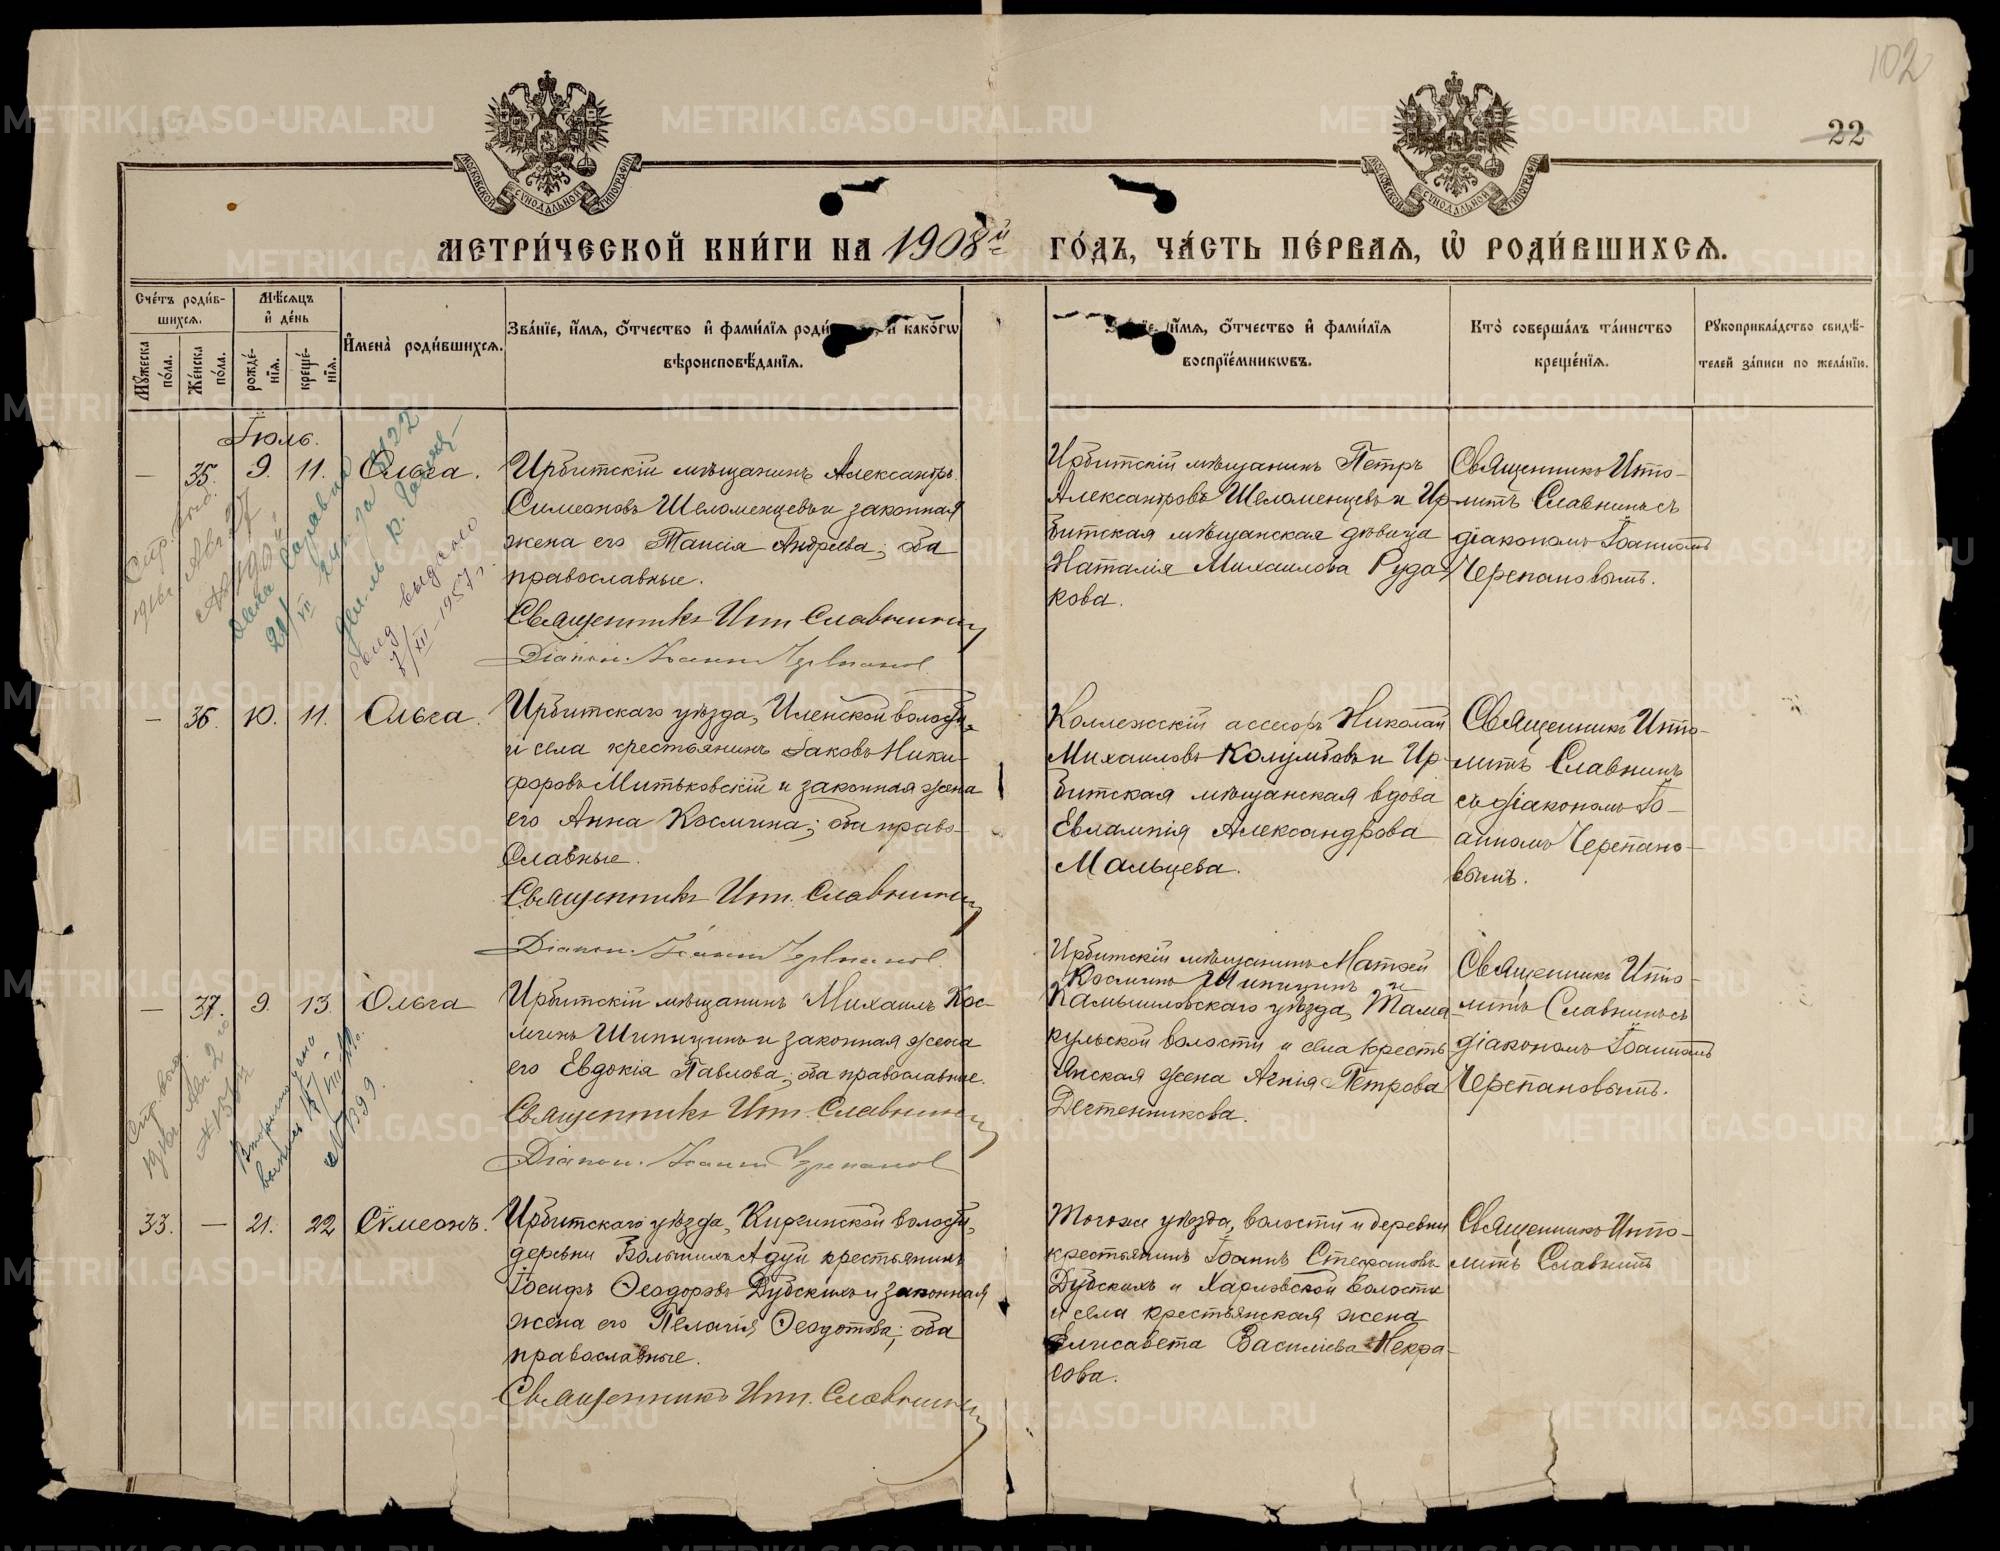 102
22
МОСКОВСКОЙ СѴНОДАЛЬНОЙ ТИПОГРАФІИ
МОСКОВСКОЙ СѴНОДАЛЬНОЙ ТИПОГРАФІИ
МЕТРИ́ЧЕСКОЙ КНИ́ГИ НА 1908й ГО́ДЪ, ЧА́СТЬ ПЕ́РВАЯ, Ѽ РОДИ́ВШИХСЯ.
Сче́тъ роди́в-
шихся.
Мꙋ́жеска по́ла.
Же́нска по́ла.
Мѣ́сяцъ
и҆ де́нь
рожде́-
нїя.
креще́-
нїя.
И҆мена̀ роди́вшихся.
Зва́нїе, и҆́мя, ѻ҆́тчество и҆ фами́лїя роди , и҆ како́гѡ
вѣроисповѣ́данїя.
и҆́мя, ѻ҆́тчество и҆ фами́лїя
воспрїе́мникѡвъ.
Кто̀ соверша́лъ та́инство
креще́нїя.
Рꙋкоприкла́дство свидѣ́-
телей за́писи по жела́нїю.
Іюль.
— 35. 9. 11. Ольга.
Ирбитскій мѣщанинъ Александръ
Симеоновъ Шеломенцевъ и законная
жена его Таисія Андреева; оба
православные.
Священникъ Ипп. Славнинъ
Діакон. Іоанн Черепанов
Ирбитскій мѣщанинъ Петръ
Александровъ Шеломенцевъ и Ир-
битская мѣщанская дѣвица
Наталія Михаилова Руда-
кова.
Священникъ Иппо-
литъ Славнинъ съ
діакономъ Іоанномъ
Черепановымъ.
выдано
7/XII-1957г.
— 36. 10. 11. Ольга.
Ирбитскаго уѣзда, Иленской волости
и села крестьянинъ Іаковъ Ники-
форовъ Митьковскій и законная жена
его Анна Космина; оба право-
славные.
Священникъ Ипп. Славнинъ
Діакон. Іоанн Черепанов
Коллежскій асесоръ Николай
Михаиловъ Колумбовъ и Ир-
битская мѣщанская вдова
Евлампія Александрова
Мальцева.
Священникъ Иппо-
литъ Славнинъ
съ діакономъ Іо-
анномъ Черепано-
вымъ.
— 37. 9. 13. Ольга
Ирбитскій мѣщанинъ Михаилъ Кос-
минъ Шипицинъ и законная жена
его Евдокія Павлова; оба православные.
Священникъ Ипп. Славнинъ
Діакон. Іоанн Черепанов
Ирбитскій мѣщанинъ Матѳей
Косминъ Шипицинъ и
Камышловскаго уѣзда, Тама-
кульской волости и села кресть-
янская жена Агнія Петрова
Дегтенникова.
Священникъ Иппо-
литъ Славнинъ съ
діакономъ Іоанномъ
Черепановымъ.
33. — 21. 22 Сѵмеонъ.
Ирбитскаго уѣзда, Киргинской волости,
деревни Большихъ Адуи крестьянинъ
Іосифъ Ѳеодоровъ Дубскихъ и законная
жена его Пелагія Ѳеодотова; оба
православные.
Священникъ Ипп. Славнинъ
Того же уѣзда, волости и деревни
крестьянинъ Іоаннъ Стефановъ
Дубскихъ и Харловской волости
и села крестьянская жена
Елисавета Василіева Некра-
сова.
Священникъ Иппо-
литъ Славнинъ
METRIKI.GASO-URAL.RU